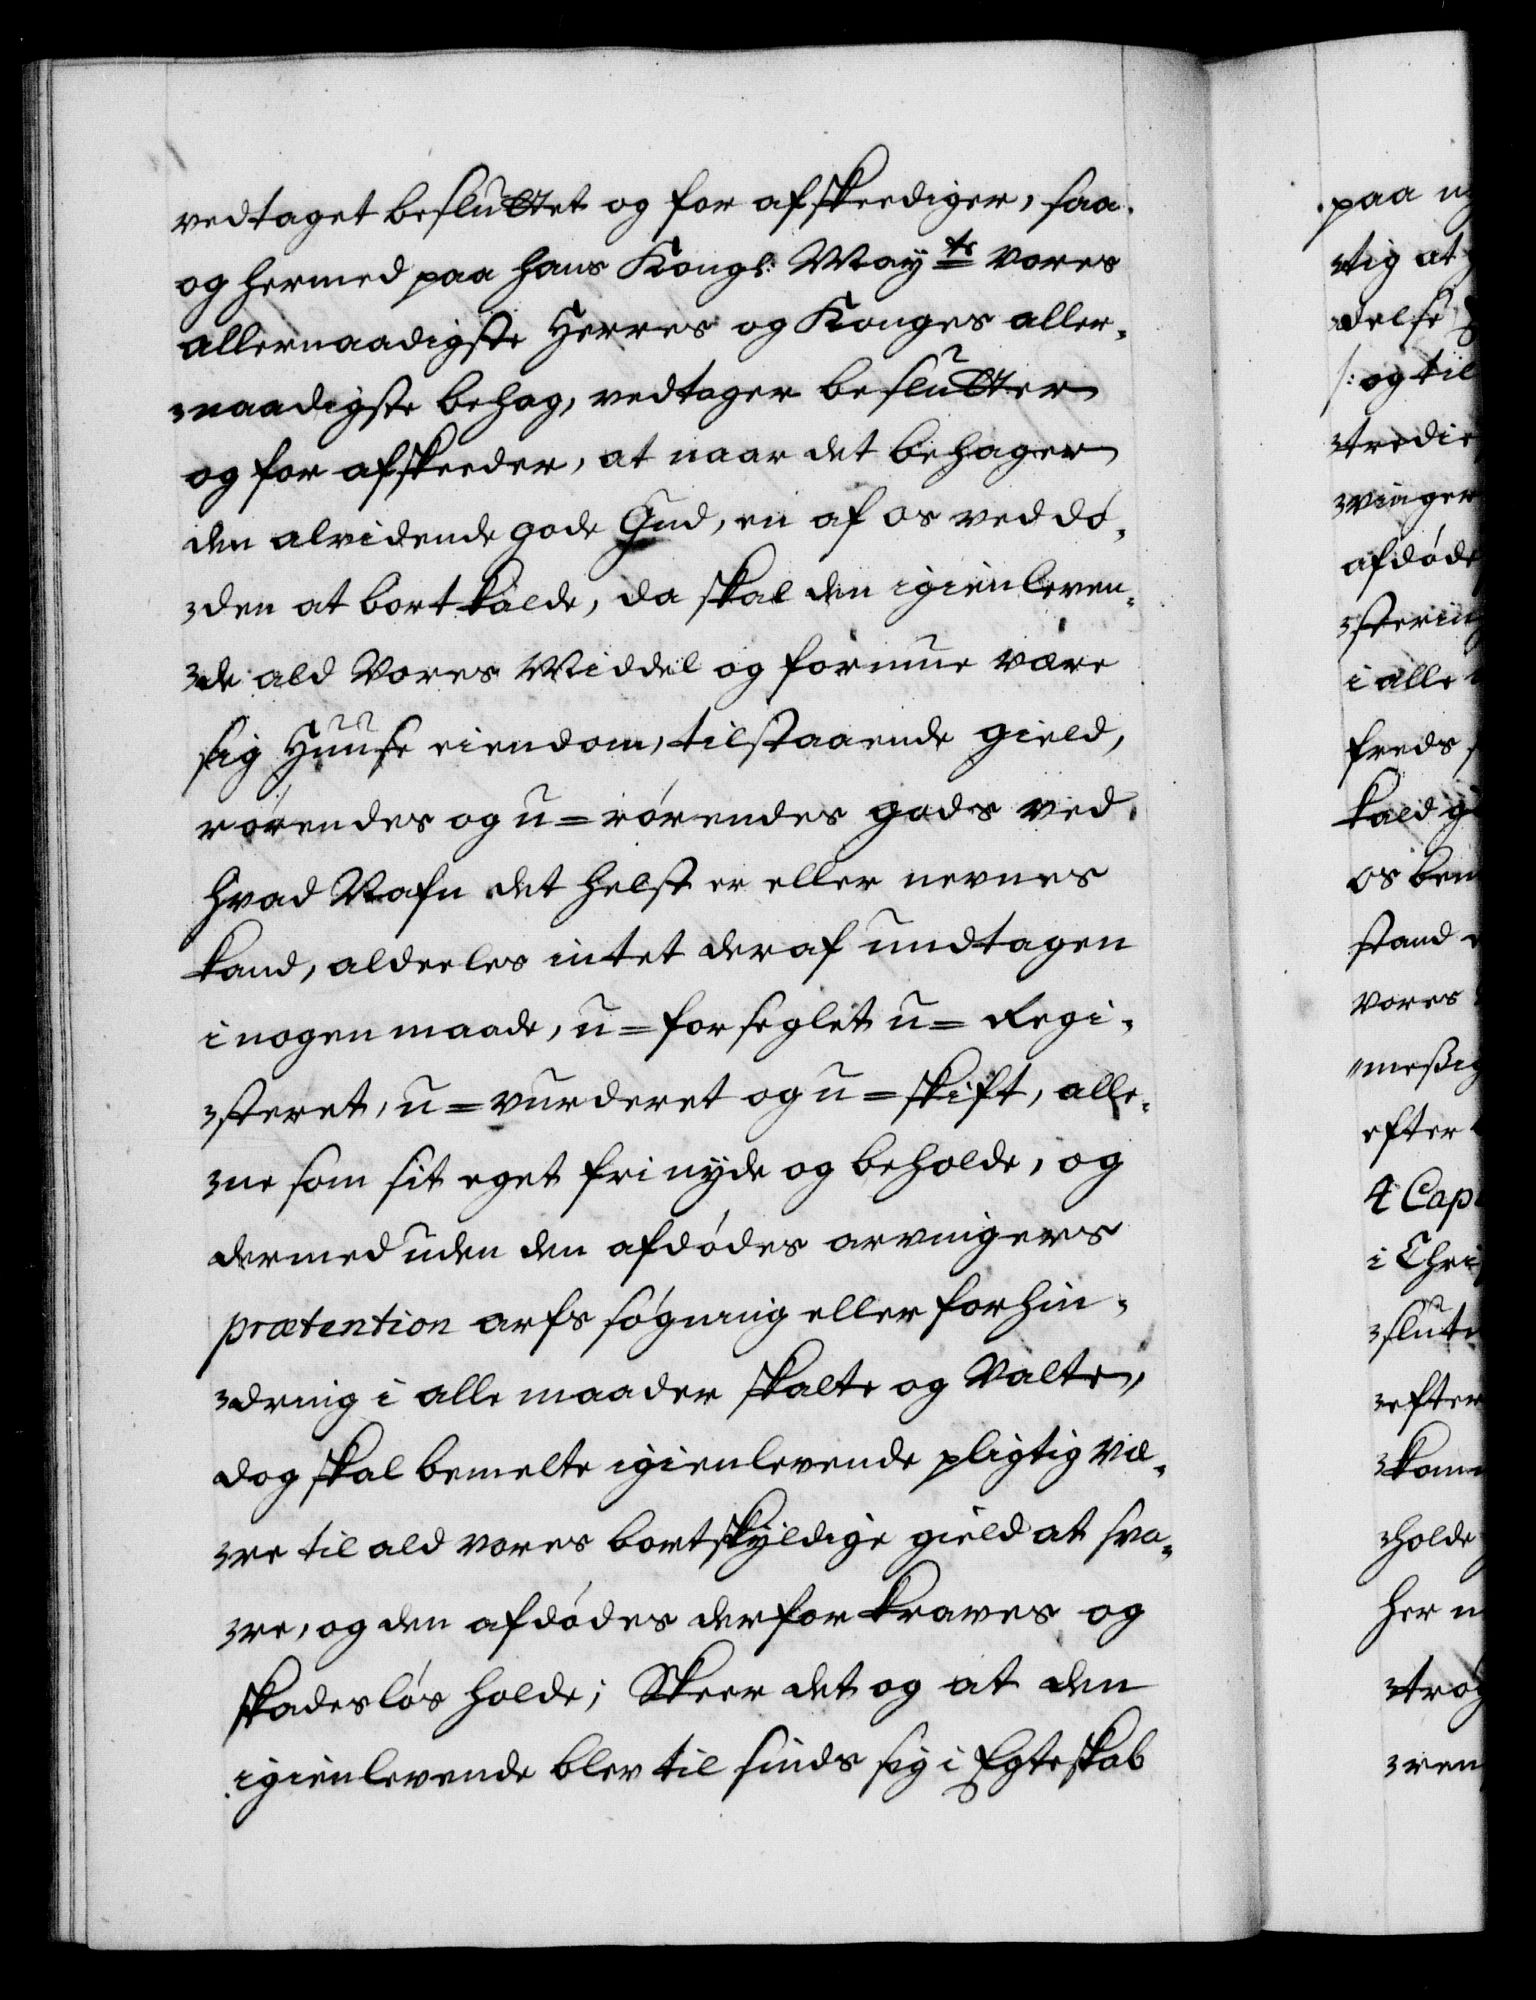 vedtaget besluttet og for afskeediger, saa
og hermed paa hans Kongl: Mayts vores
allernaadigste Herres og Konges aller-
naadigste behag, vedtager beslutter
og for afskeeder, at naar det behager
den alvidende gode Gud, en af os ved dø-
den at bort kalde, da skal den igienleven-
de ald Vores Middel og formue være
sig Huuse eiendom, tilstaaende gield,
rørendes og u=rørendes gods ved
hvad Nafn det helst er eller nevnes
kand, aldeeles intet deraf undtagen
i nogen maade, u=forseglet u=Regi-
steret, u=vurderet og u=skift, alle-
ne som sit eget fri nyde og beholde, og
dermed uden den afdødes arvingers
prætention arfs søgning eller forhin-
dring i alle maader skalte og Valte,
dog skal bemelte igienlevende pligtig væ-
re til ald vores bortskyldige gield at sva-
re, og den afdødes derfor kraves og
skadesløs holde; Skeer det og at den
igienlevende blev til sinds sig i Egteskab
paa ny
tig at
delse
/: og til
tredie
vinger
afdøde
stering
i alle
freds
kald gi
os ben
stand
vores
messig
efter
4 Cap
i Chri
slute
efter
kom
holde
her
trø
ren